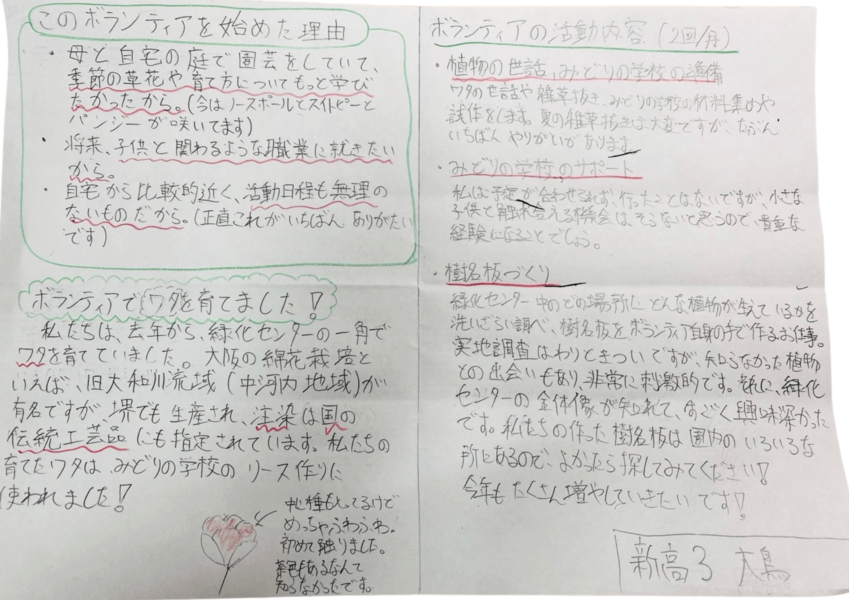 このボランティアを始めた理由
・母と自宅の庭で園芸をしていて、
季節の草花や育て方についてもっと学び
たかったから。(今はノースポールとスイトピーと
パンジーが咲いてます)
・将来、子供と関わるような職業に就きたい
から。
・自宅から比較的近く、活動日程も無理の
ないものだから。(正直これがいちばんありがたい
です)
ボランティアでワタを育てました!
私たちは、去年から、緑化センターの一角で
ワタを育てていました。大阪の綿花栽培と
いえば、旧大和川流域(中河内地域)が
有名ですが、堺でも生産され、注染は国の
伝統工芸品にも指定されています。私たちの
育てたワタは、みどりの学校のリース作りに
使われました!
中心種もとってるけど
めっちゃふわふわ。
初めて触りました。
もあるなんて
知らなかったです。
ボランティアの活動内容(2回/月)
・植物の世話、みどりの学校の準備
ワタの世話や雑草抜き、みどりの学校の材料集めや
試作をします。夏の雑草抜きは大変ですが、たぶん
いちばんやりがいがあります。
・みどりの学校のサポート
私は予定が合わせられず、行ったことはないですが、小さな
子供と触れ合える機会は、そうないと思うので、貴重な
経験になることでしょう。
・樹名板づくり
緑化センター中のどの場所にどんな植物が生えているかを
洗いざらい調べ、樹名板をボランティア自身の手で作るお仕事。
実地調査はわりときついですが、知らなかった植物
との出会いもあり、非常に刺激的です。それに、緑化
センターの全体像が知れて、すごく興味深かった
です。私たちの作った樹名板は園内のいろいろな
所にあるので、よかったら探してみてください!
今年もたくさん増やしていきたいです!
新高3 大鳥